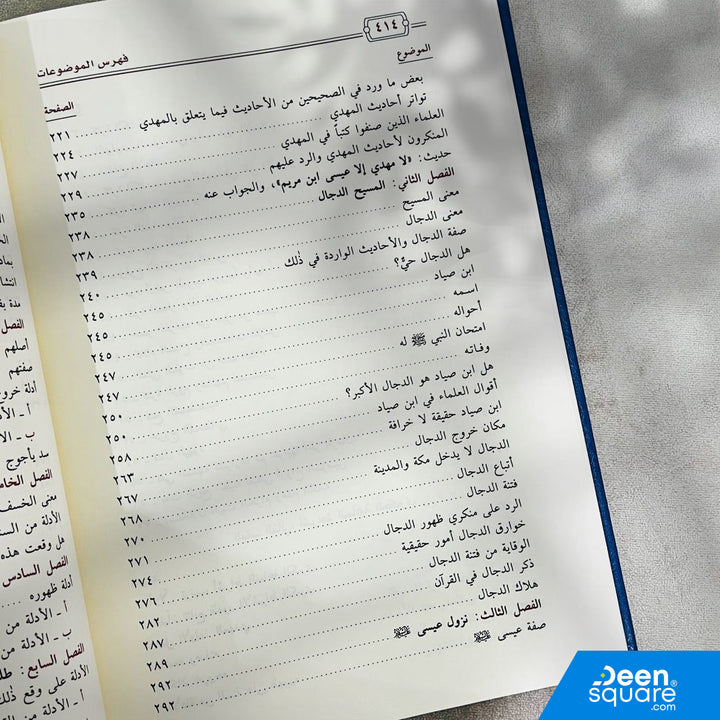 ٤١٤
فهرس الموضوعات
الموضوع الصفحة
بعض ما ورد في الصحيحين من الأحاديث فيما يتعلق بالمهدي ٢٢١
تواتر أحاديث المهدي ٢٢٤
العلماء الذين صنفوا كتباً في المهدي ٢٢٧
المنكرون لأحاديث المهدي والرد عليهم ٢٢٩
حديث: «لا مهدي إلا عيسى ابن مريم»، والجواب عنه ٢٣٥
الفصل الثاني: المسيح الدجال ٢٣٨
معنى المسيح ٢٣٨
معنى الدجال ٢٣٩
صفة الدجال والأحاديث الواردة في ذلك ٢٤٠
هل الدجال حيٌّ؟ ٢٤٥
ابن صياد ٢٤٥
اسمه ٢٤٥
أحواله ٢٤٧
امتحان النبي ﷺ له ٢٤٧
وفاته ٢٥٠
هل ابن صياد هو الدجال الأكبر؟ ٢٥٠
أقوال العلماء في ابن صياد ٢٥٨
ابن صياد حقيقة لا خرافة ٢٦٣
مكان خروج الدجال ٢٦٧
الدجال لا يدخل مكة والمدينة ٢٦٨
أتباع الدجال ٢٧٠
فتنة الدجال ٢٧١
الرد على منكري ظهور الدجال ٢٧٤
خوارق الدجال أمور حقيقية ٢٧٦
الوقاية من فتنة الدجال ٢٨٢
ذكر الدجال في القرآن ٢٨٧
هلاك الدجال ٢٨٩
الفصل الثالث: نزول عيسى ﷺ ٢٩٢
صفة عيسى ﷺ ٢٩٢
مدة
الفصل
أصلهم
صفتهم
أدلة خروج
أ ـ الأد
ب ـ الأ
سد يأجوج
الفصل الخام
معنى الخسف
الأدلة من السن
هل وقعت هذه
الفصل السادس
أدلة ظهوره
أ ـ الأدلة من
ب ـ الأدلة من
الفصل السابع: طل
الأدلة على وقع ذلك
أ ـ الأدلة من القرآن
Deen
square®
.com